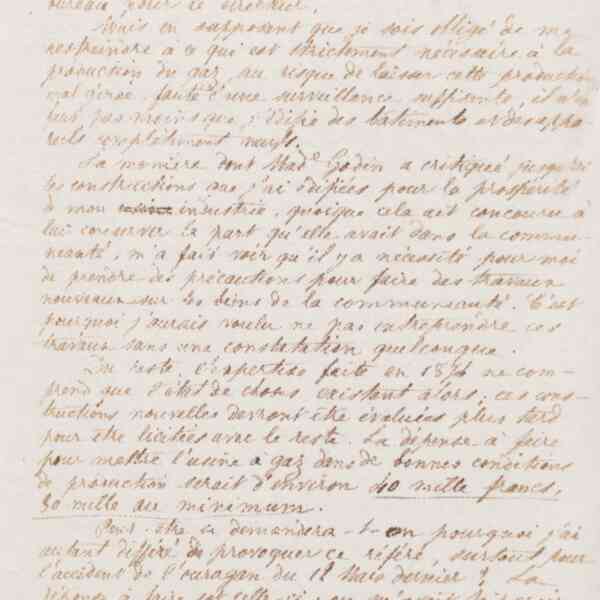 bureau pour le directeur.
Mais en supposant que je sois obligé de me
restreindre à ce qui est strictement nécessaire à la
production du gaz, au risque de laisser cette production
mal gérée faute d'une surveillance suffisante, il n'en
faut pas moins que j'édifie des bâtiments et des appa-
reils complètement neufs.
La manière dont Mad.e Godin a critiqué jusqu'ici
les constructions que j'ai édifiées pour la prospérité
de mon industrie, quoique cela ait concouru à
lui conserver la part qu'elle avait dans la commu-
nauté, m'a fait voir qu'il y a nécessité pour moi
de prendre des précautions pour faire des travaux
nouveaux sur les biens de la communauté. C'est
pourquoi j'aurais voulu ne pas entreprendre ces
travaux sans une constatation quelconque.
Du reste, l'expertise faite en 18 ne com-
prend que l'état de choses existant alors; ces cons-
tructions nouvelles devront être évaluées plus tard
pour être licitées avec le reste. La dépense à faire
pour mettre l'usine à gaz dans de bonnes conditions
de production serait d'environ 40 mille francs,
30 mille au minimum.
Peut-être se demandera-t-on pourquoi j'ai
autant différé de provoquer ce référé, surtout pour
l'accident de l'ouragan du 12 Mars dernier? La
réponse à faire est celle-ci: